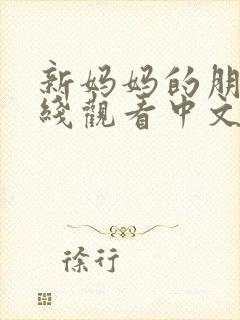 新妈妈的朋
綫觀看中文
徐行